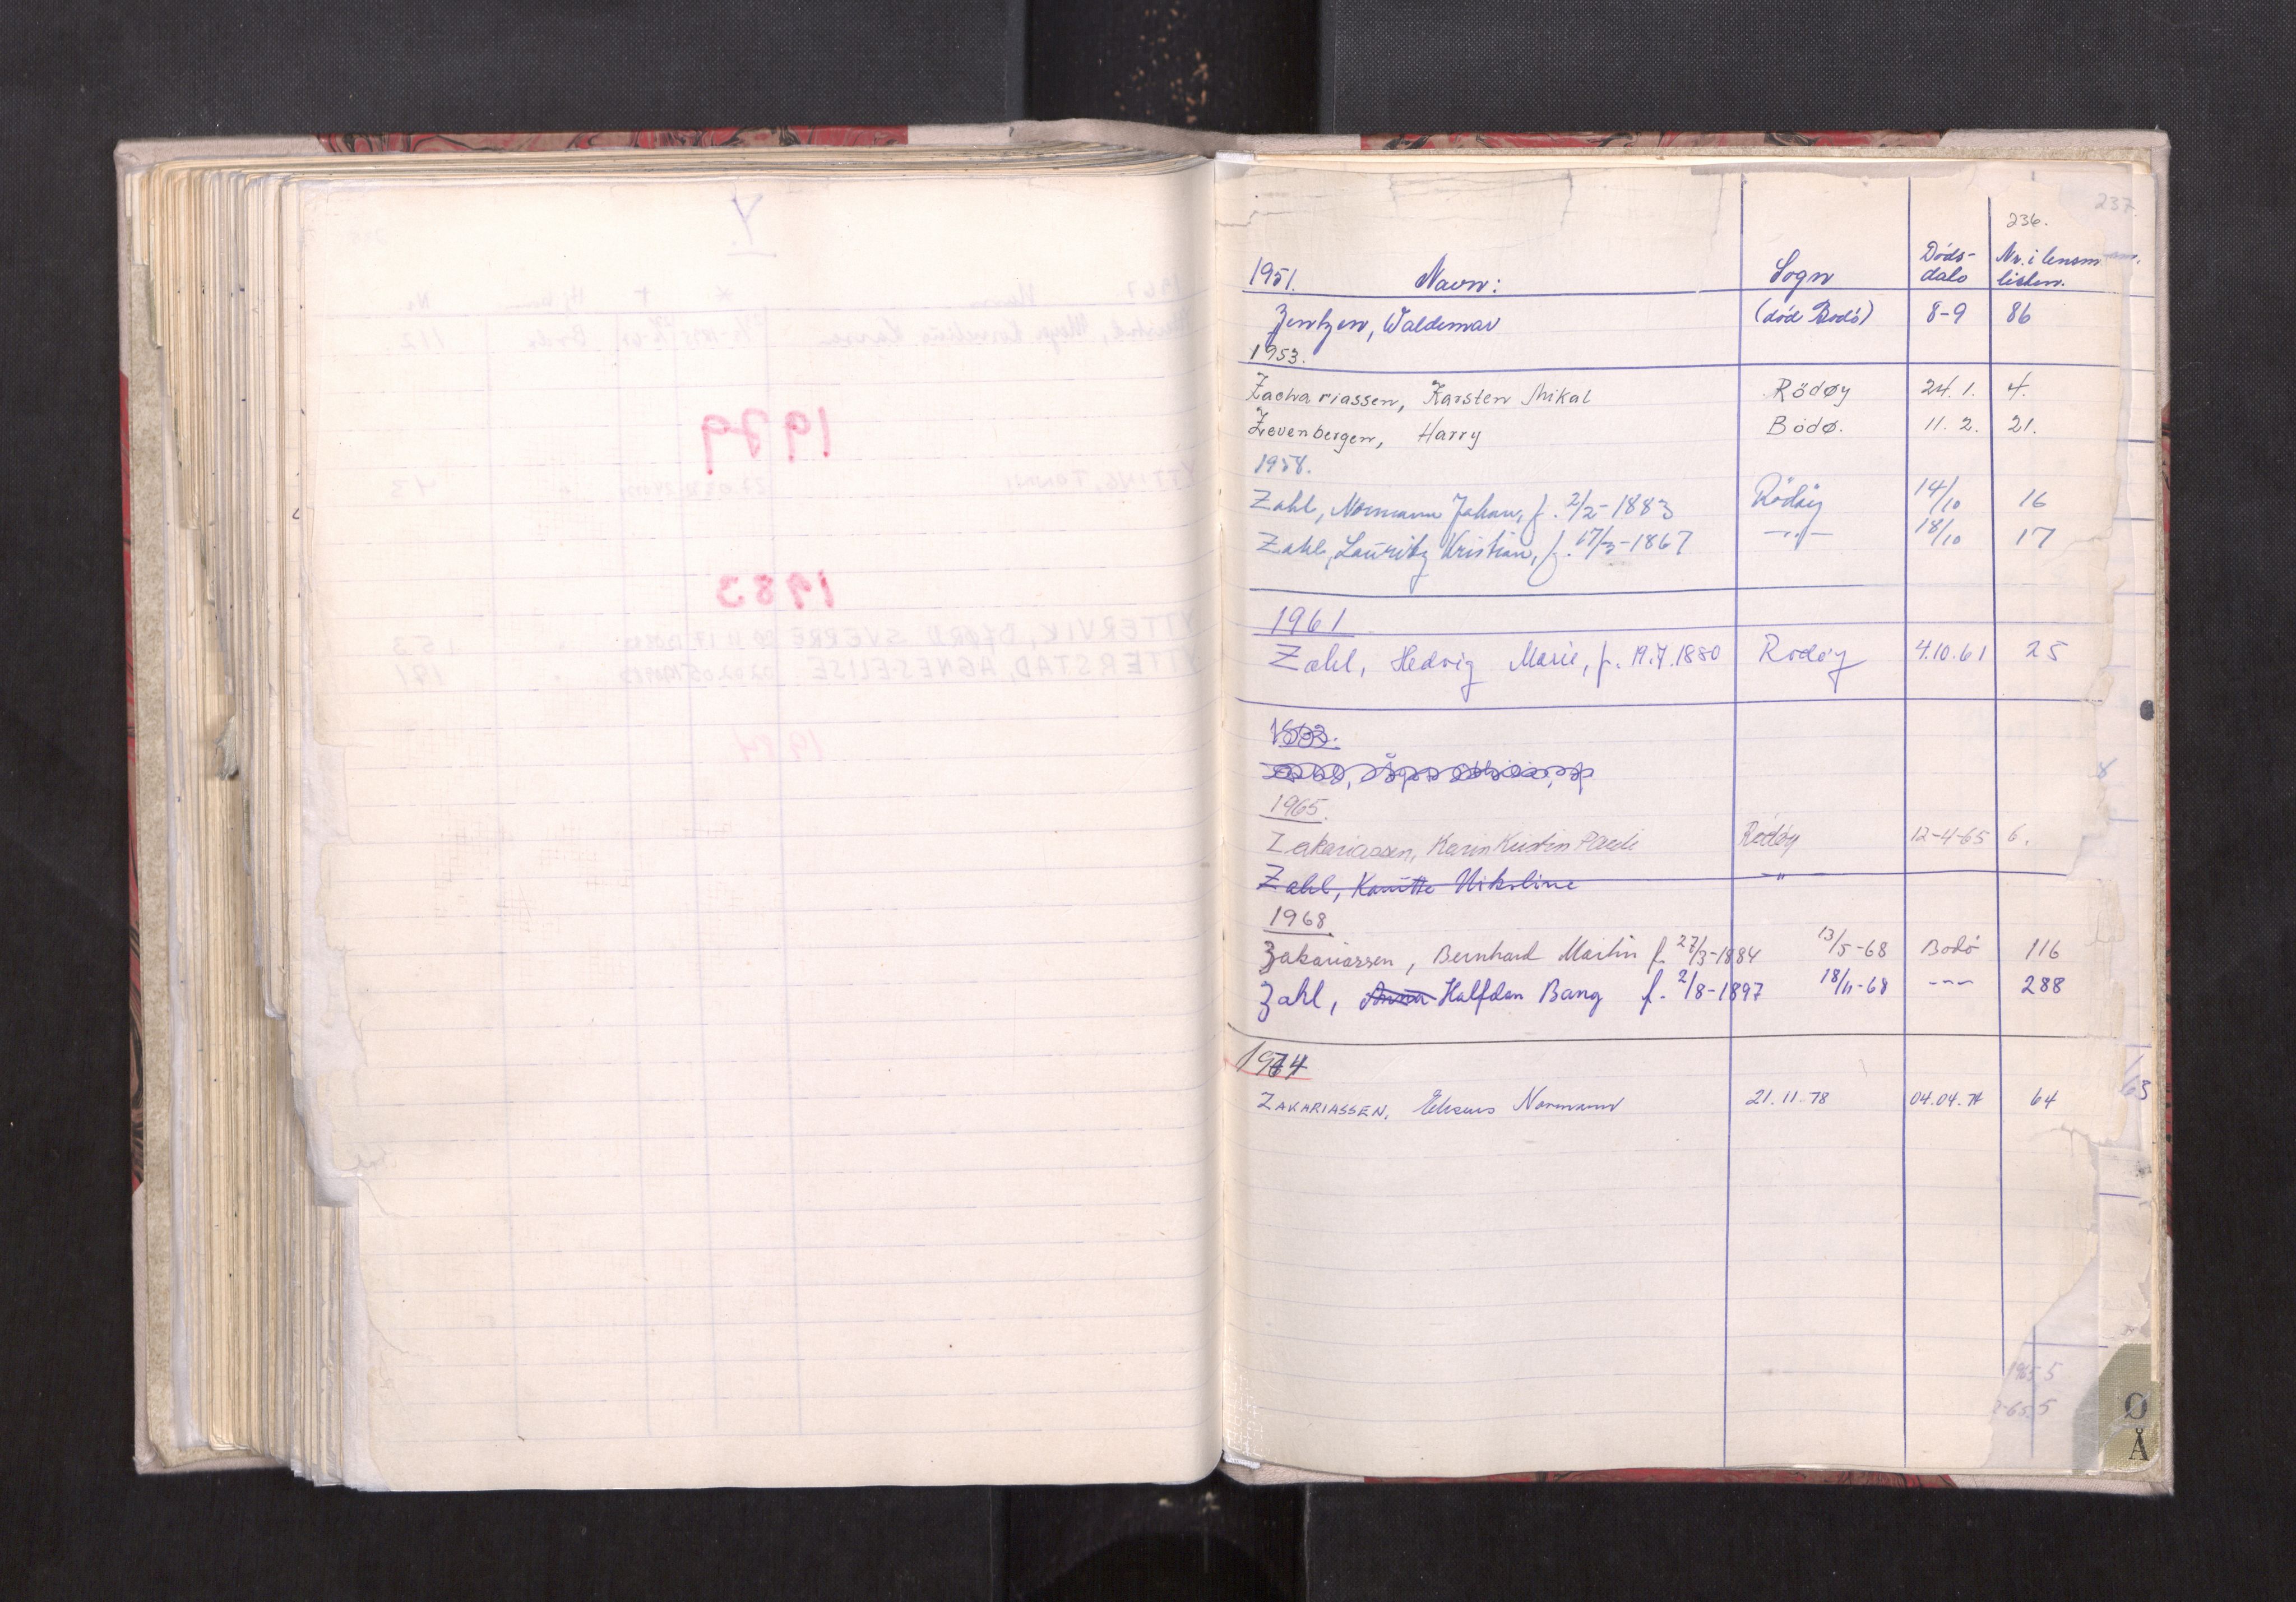 237.
236.
1951. Navn: Sogn Døds-dato Nr. i lensm. listen.
Zentzen, Waldemar (død Bodö) 8-9 86
1953.
Zachariassen, Karsten Mikal Rödøy 24.1. 4.
Zevenbergen, Harry Bödø. 11.2. 21.
1958.
Zahl, Normann Johan, f. 2/2-1883 Rödöy 14/10 16
Zahl, Lauritz Kristian, f. 17/3-1867 -"- 18/10 17
1961
Zahl, Hedvig Marie, f. 19.7.1880 Rødøy 4.10.61 25
1965.
Zakariassen, Karin Kristin Rødøy 12-4-65 6.
Zahl, Kanutte Nikoline "
1968.
Zakariassen, Bernhard Martin f. 27/3-1884 13/5-68 Bodö 116
Zahl, Halfdan Bang f. 2/8-1897 18/11-68 --- 288
1974
ZAKARIASSEN, Normann 21.11.78 04.04.74 64
63
1965 5
-65 5
Ø
Å
Y
1979
1983
YTTERVIK, BJØRN SVERRE 153
YTTERSTAD, AGNES-ELISE 191
1984